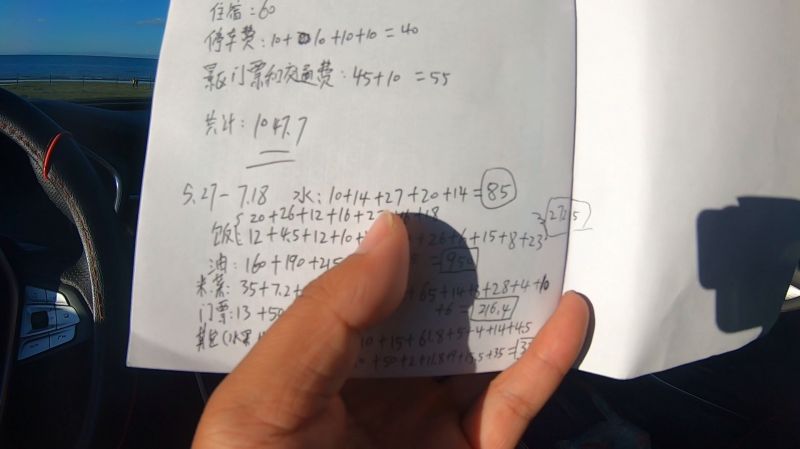 住宿：60
停车费：10+10+10+10=40
景区门票和交通费：45+10=55
共计：1047.7
5.27-7.18 水：10+14+27+20+14=85
饭 20+26+12+16+2 +18
12+4.5+12+10+ 26+6+15+8+23
油：160+190+215 =950
米菜：35+7.2+ 65+14+ +28+4+10
+6=216.4
门票：13+50
其它(水果 10+15+61.8+5+4+14+4.5
+50+2+11.8+9+15.5+35=3